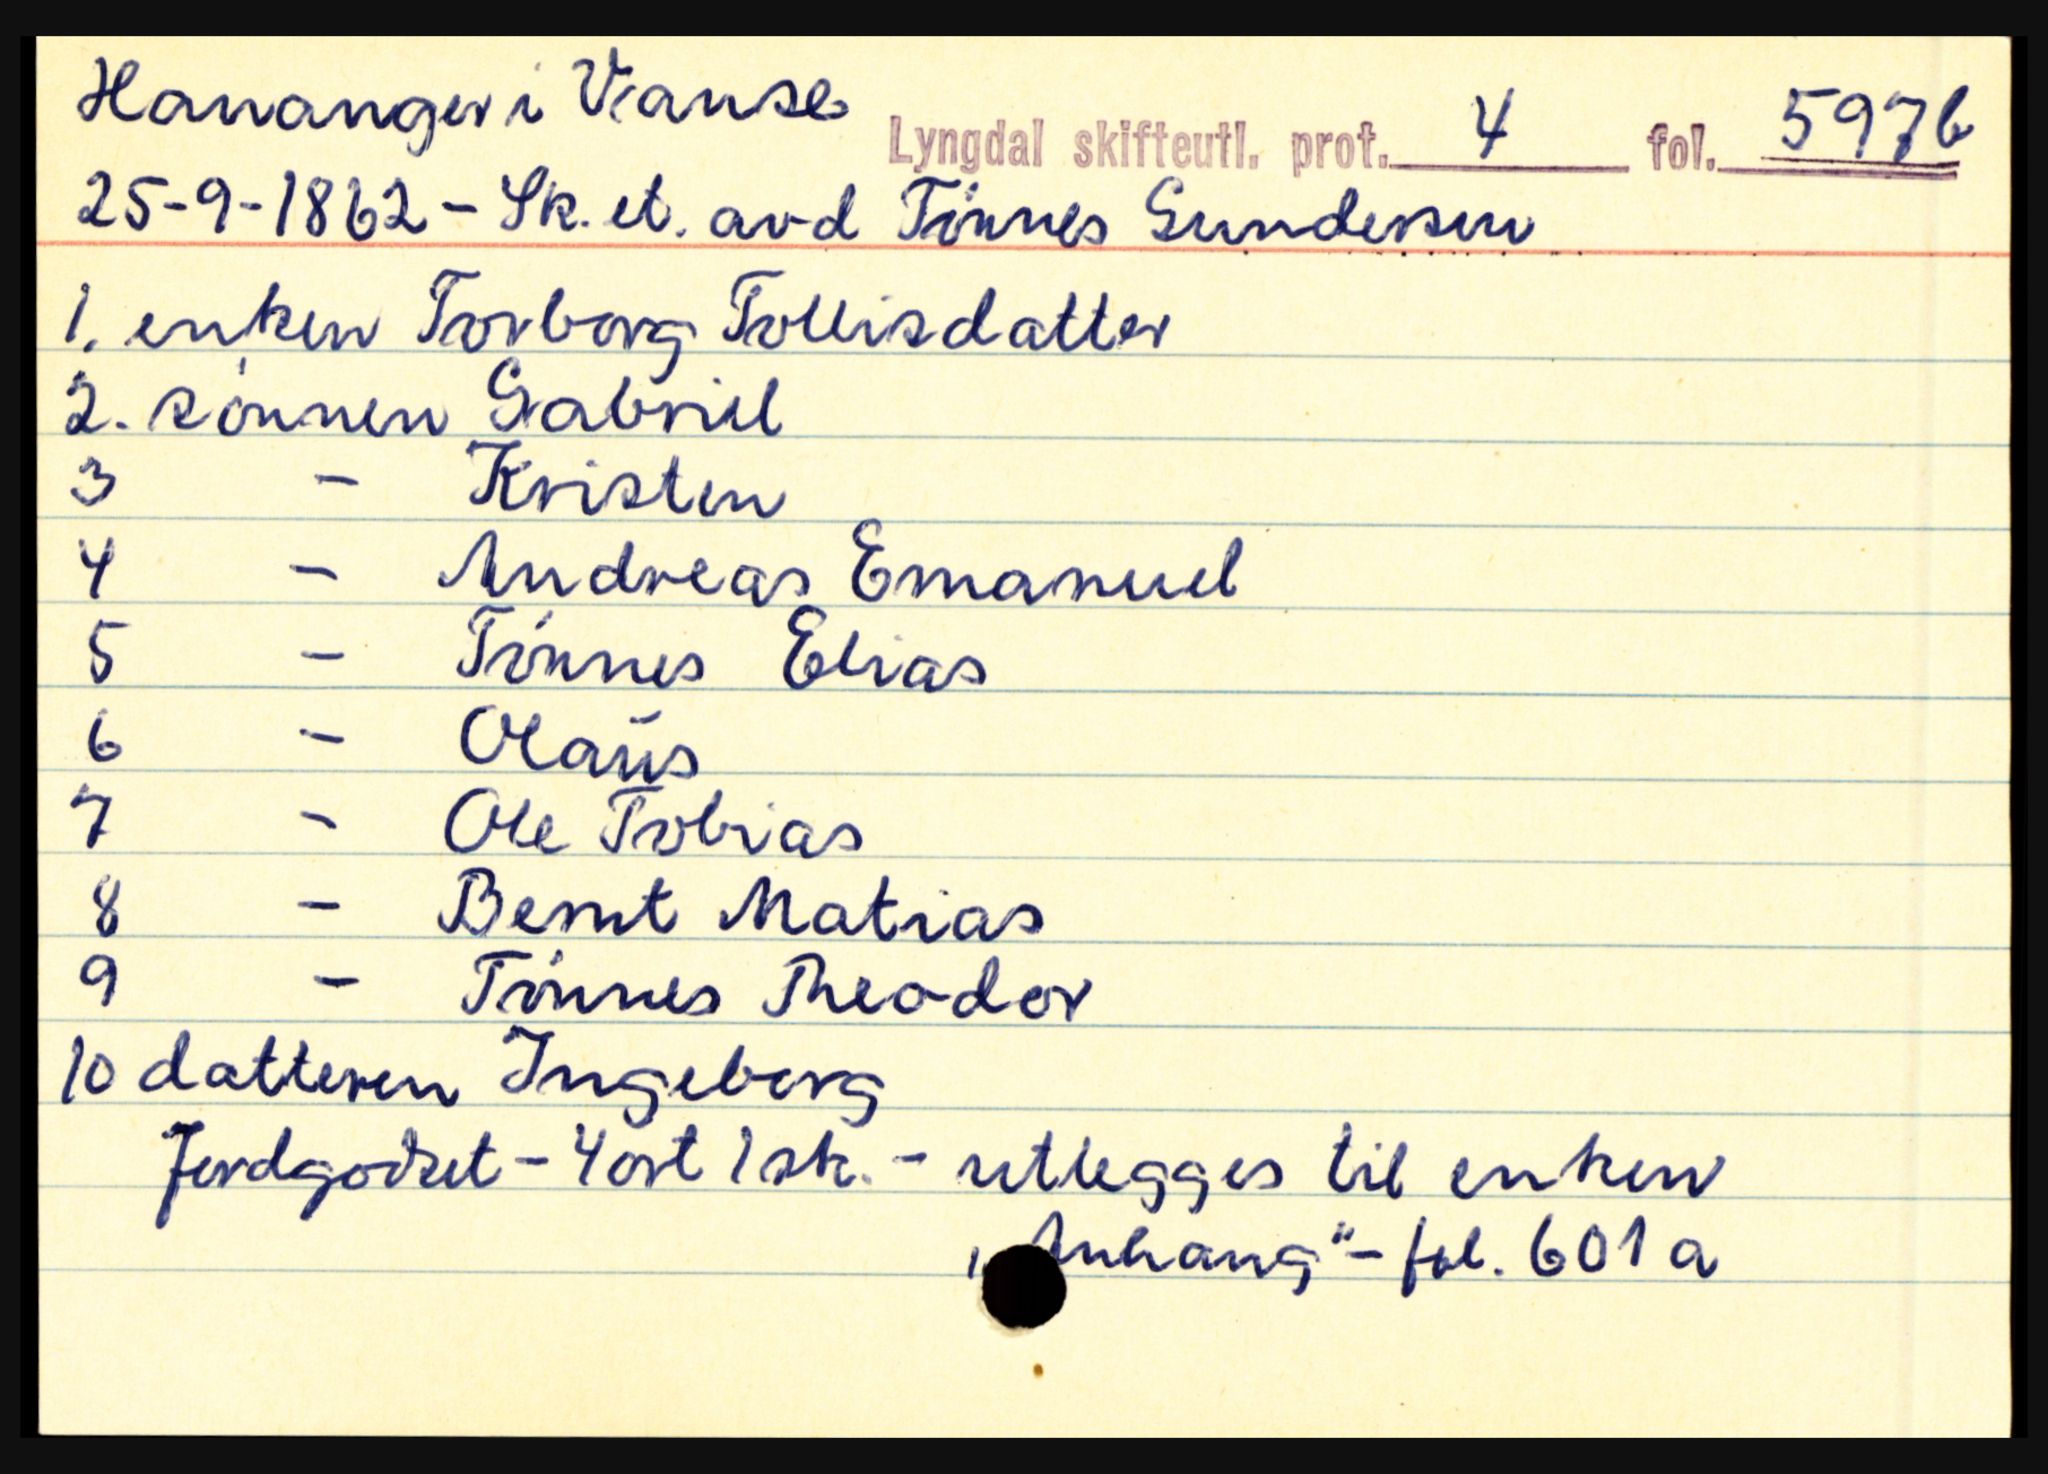 Hananger i Vanse Lyngdal skifteutl. prot. 4 fol. 597b
25-9-1862 - Sk. et. avd Tønnes Gundersen
1. enken Torborg Tollisdatter
2. sønnen Gabriel
3 - Kristen
4 - Andreas Emanuel
5 - Tønnes Elias
6 - Olaus
7 - Ole Tobias
8 - Bernt Matias
9 - Tønnes Theodor
10 datteren Ingeborg
Jordgodset - 4 ort 1 sk. - utlegges til enken
"Anhang" - fol. 601a